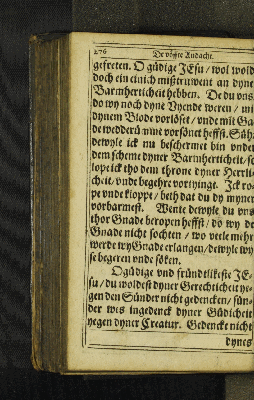 276
De vöffte Andacht.
gefreten. O güdige JEsu / wol wold
doch ein einich mißtruwent an dyne
Barmherticheit hebben. De du vns
do wy noch dyne Vyende weren / mi
dynem Blode vorlöset / vnde mit Ga
de wedderümme vorsönet heffst. Süh
dewyle ick nu beschermet bin vnder
dem scheme dyner Barmherticheit / so
lope ick tho dem throne dyner Herrli-
cheit / vnde begehre vortyinge. Ick ro-
pe vnde kloppe / beth dat du dy myner
vorbarmest. Wente dewyle du vns
thor Gnade beropen heffst / do wy de
Gnade nicht sochten / wo veele mehr
werde wy Gnade erlangen / dewyle wy
se begeren vnde söken.
O güdige vnd fründtlikeste JE-
su / du woldest dyner Gerechticheit ye-
gen den Sünder nicht gedencken / sün-
der wes ingedenck dyner Güdicheit
yegen dyner Creatur. Gedencke nicht
dynes